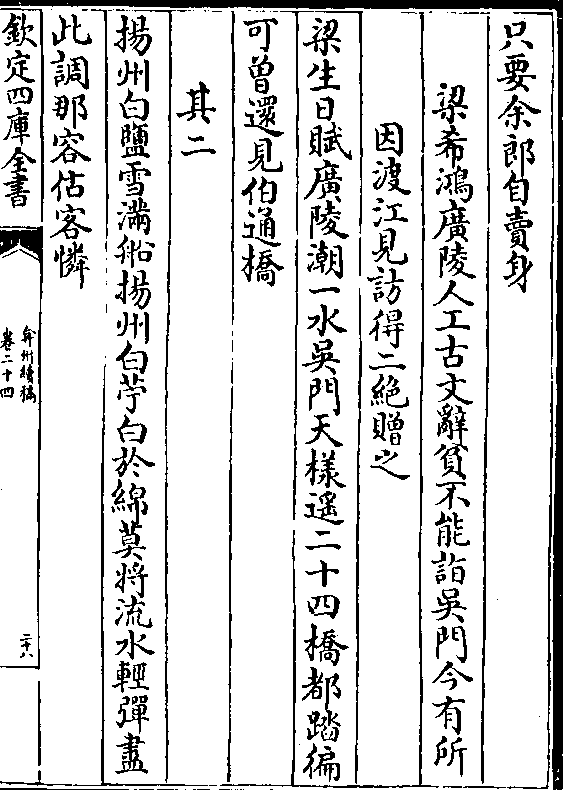 只要余郎自賣身
梁希鴻廣陵人工古文辭貧不能詣吳門今有所
因渡江見訪得二絕贈之
梁生日賦廣陵潮一水吳門天樣遥二十四橋都踏徧
可曾還見伯通橋
其二
揚州白鹽雪滿船揚州白苧白於綿莫將流水輕彈盡
此調那容估客憐
欽定四庫全書
弇州續稿
卷二十四
二十八